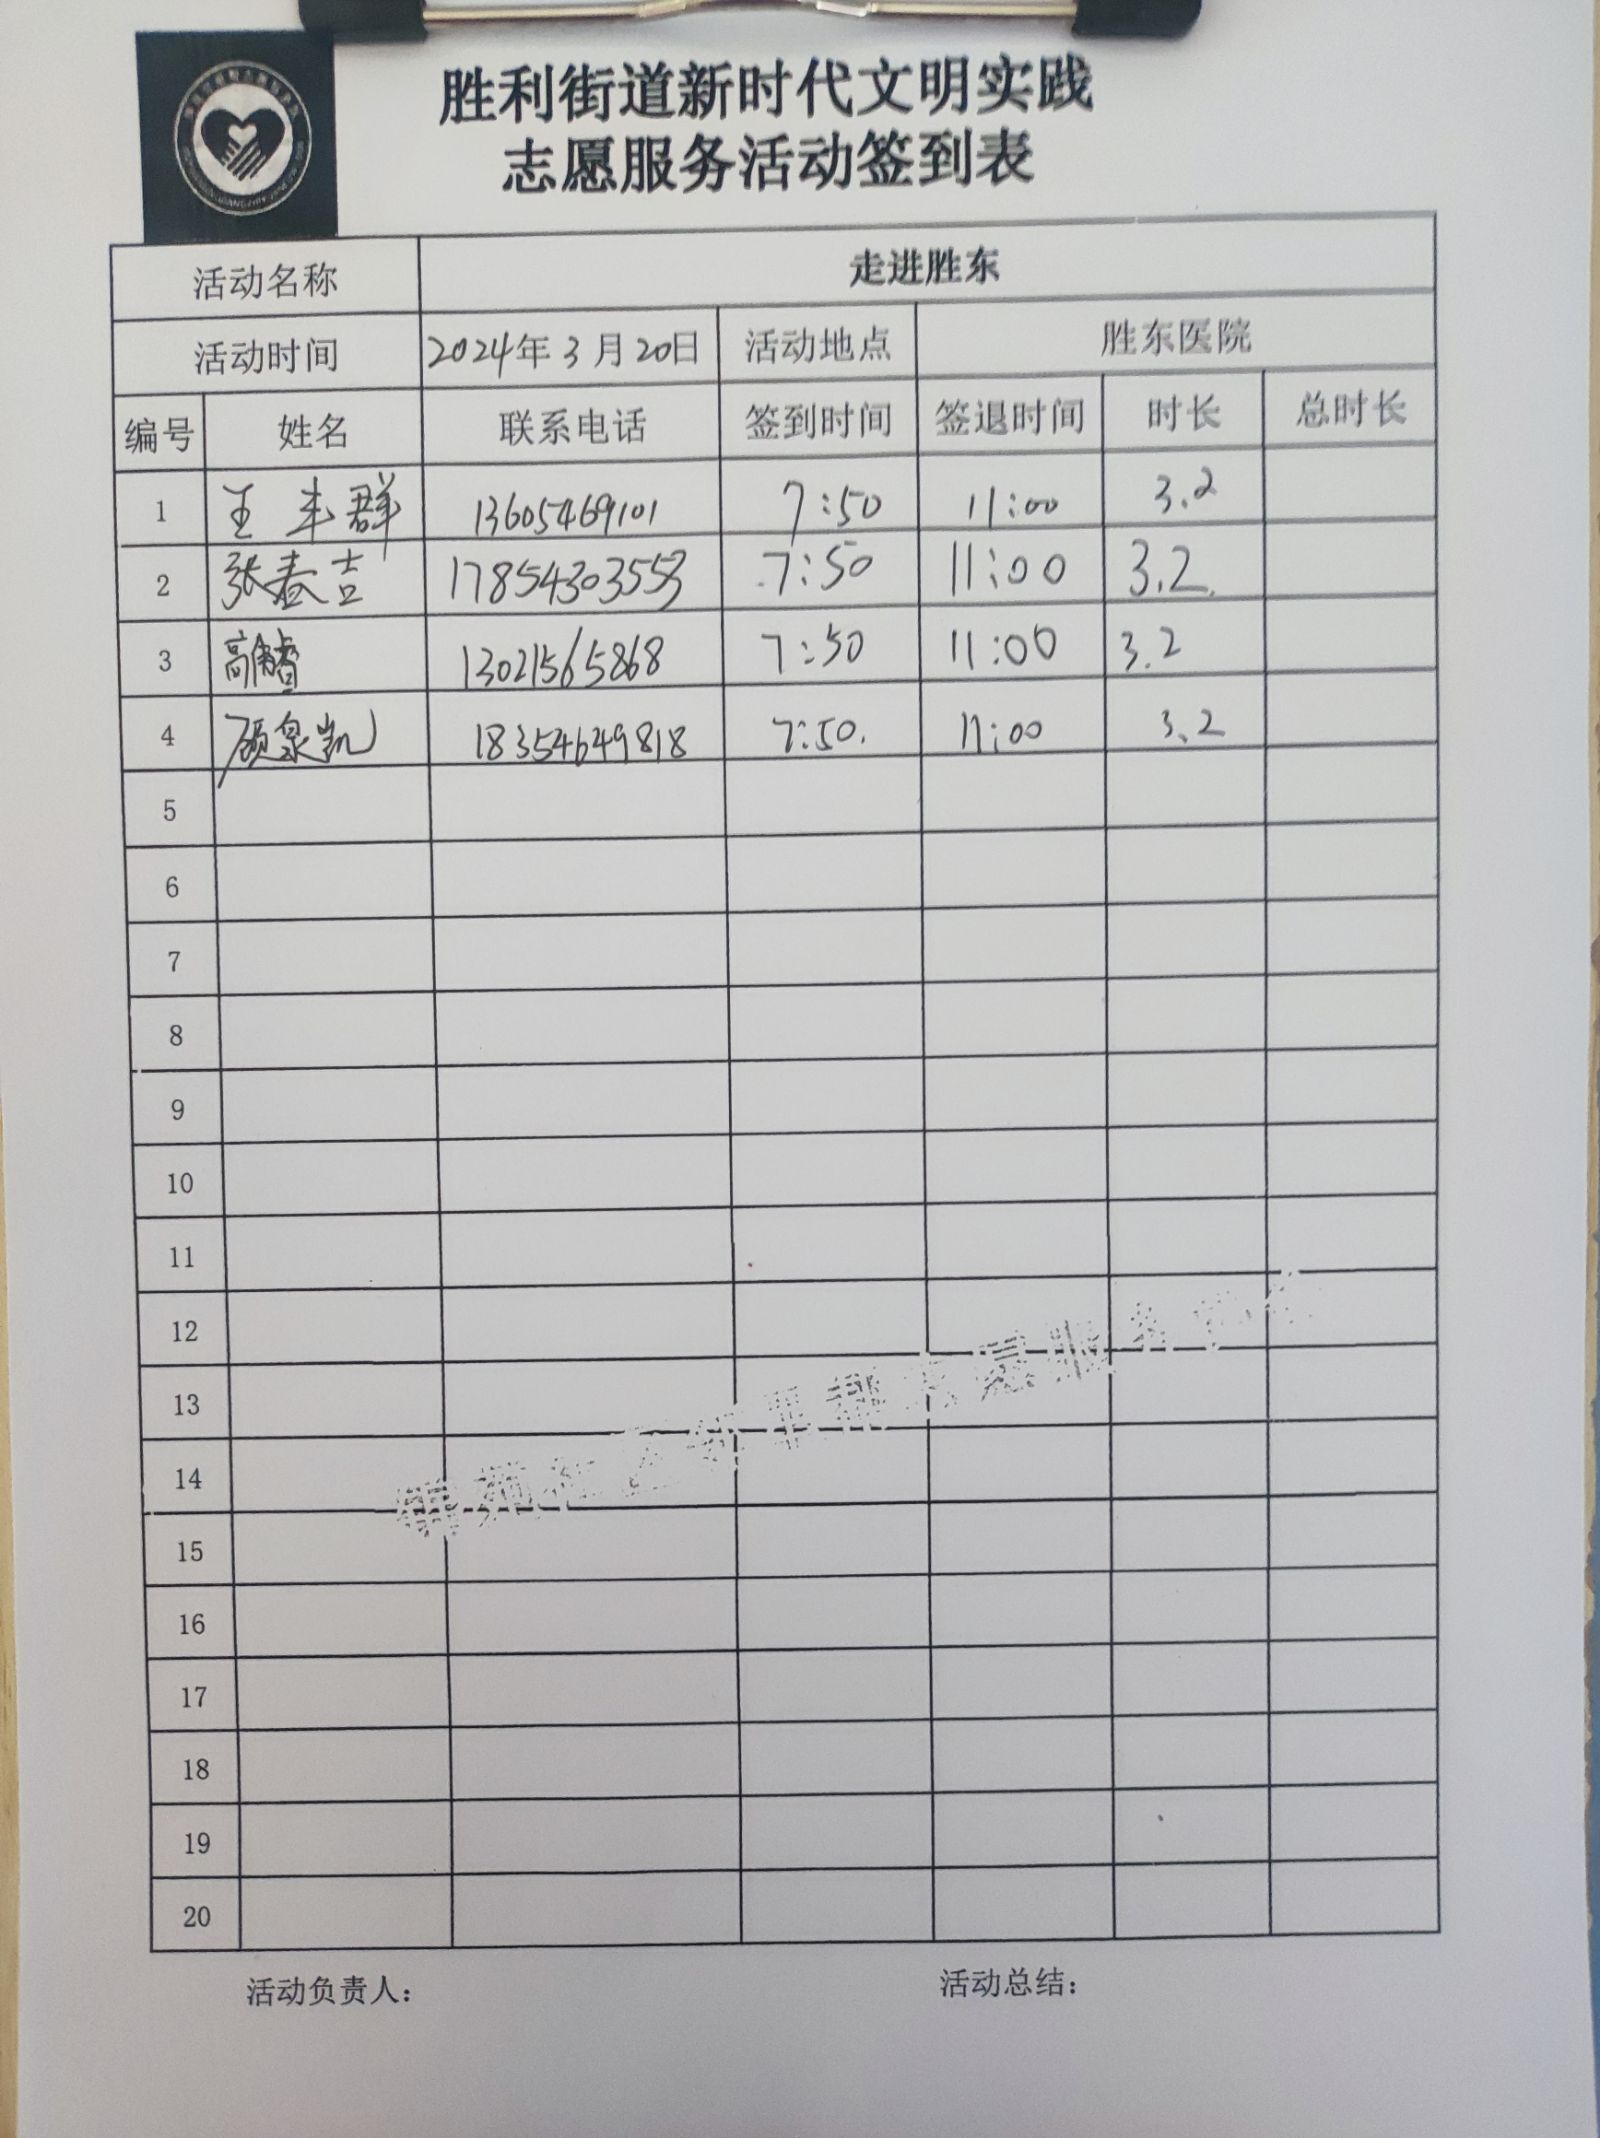 胜利街道新时代文明实践
志愿服务活动签到表
活动名称 走进胜东
活动时间 2024年3月20日 活动地点 胜东医院
编号 姓名 联系电话 签到时间 签退时间 时长 总时长
1 王丰群 13605469101 7:50 11:00 3.2
2 张春吉 17854303553 7:50 11:00 3.2
3 高 13021565868 7:50 11:00 3.2
4 顾泉凯 18354649818 7:50 11:00 3.2
5
6
7
8
9
10
11
12
13
14
15
16
17
18
19
20
活动负责人: 活动总结: